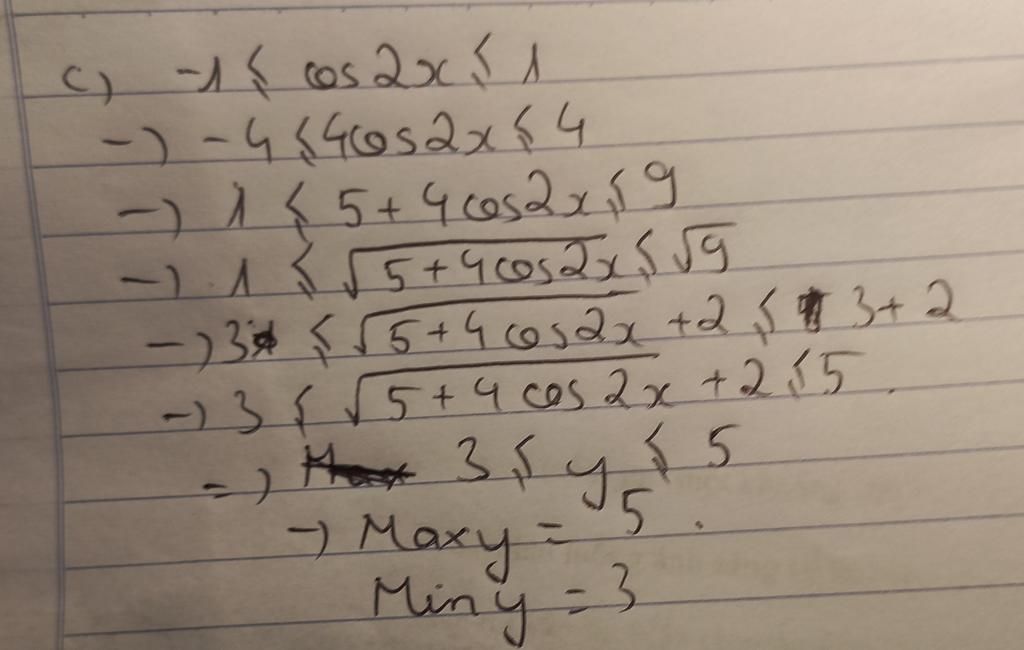 c) -1 ⩽ cos2x ⩽ 1
-) -4 ⩽ 4cos2x ⩽ 4
-) 1 ⩽ 5 + 4cos2x ⩽ 9
-) 1 ⩽ √(5 + 4cos2x) ⩽ √9
-) 3 ⩽ √(5 + 4cos2x) + 2 ⩽ 3 + 2
-) 3 ⩽ √(5 + 4cos2x) + 2 ⩽ 5.
=) 3 ⩽ y ⩽ 5
-) Maxy = 5.
Miny = 3